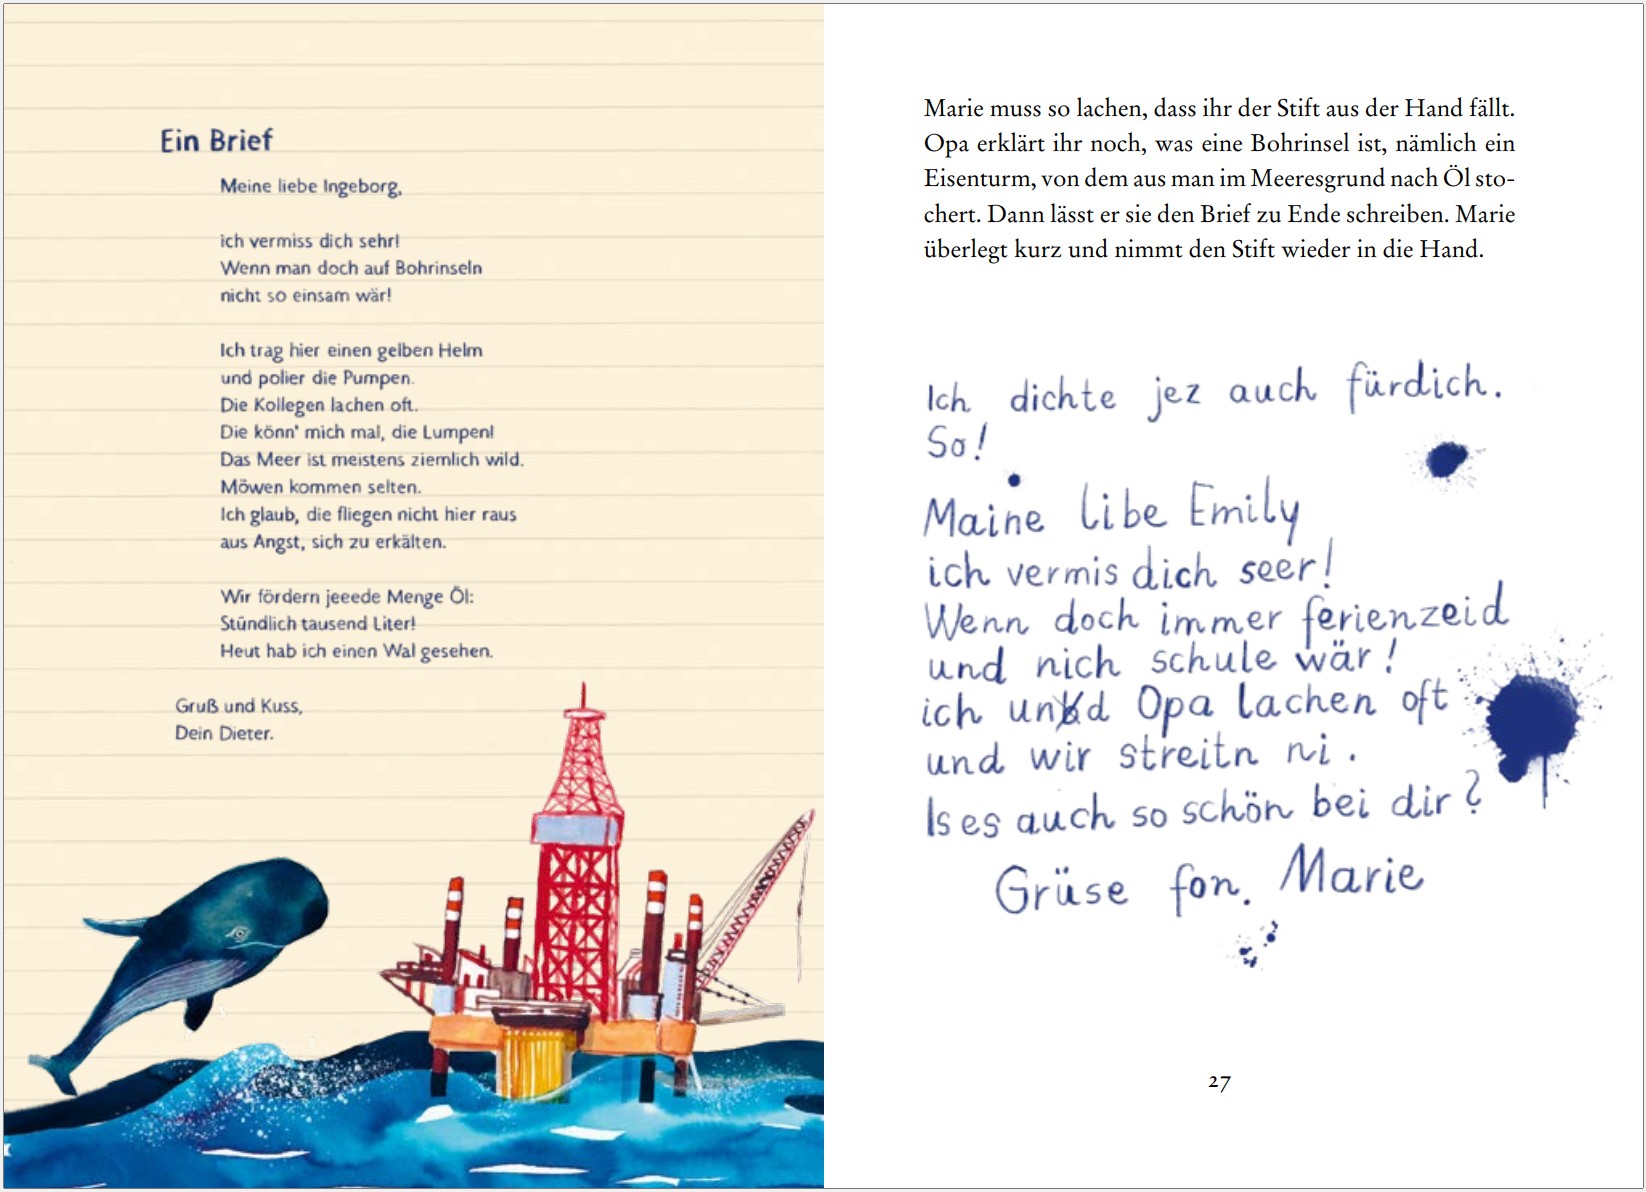 Ein Brief
Meine liebe Ingeborg,
ich vermiss dich sehr!
Wenn man doch auf Bohrinseln
nicht so einsam wär!
Ich trag hier einen gelben Helm
und polier die Pumpen.
Die Kollegen lachen oft.
Die könn' mich mal, die Lumpen!
Das Meer ist meistens ziemlich wild.
Möwen kommen selten.
Ich glaub, die fliegen nicht hier raus
aus Angst, sich zu erkälten.
Wir fördern jeeede Menge Öl:
Stündlich tausend Liter!
Heut hab ich einen Wal gesehen.
Gruß und Kuss,
Dein Dieter.
Marie muss so lachen, dass ihr der Stift aus der Hand fällt.
Opa erklärt ihr noch, was eine Bohrinsel ist, nämlich ein
Eisenturm, von dem aus man im Meeresgrund nach Öl sto-
chert. Dann lässt er sie den Brief zu Ende schreiben. Marie
überlegt kurz und nimmt den Stift wieder in die Hand.
Ich dichte jez auch fürdich.
So!
Maine libe Emily
ich vermis dich seer!
Wenn doch immer ferienzeid
und nich schule wär!
ich und Opa lachen oft
und wir streitn ni.
Is es auch so schön bei dir?
Grüse fon. Marie
27